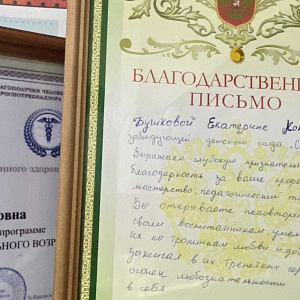 АГОПОЛУЧИЯ ЧЕЛОВЕ
РОСПОТРЕБНАДЗОРА
нного здоров
овна
программе
ЬНОГО ВОЗР
БЛАГОДАРСТВЕНН
ПИСЬМО
Бушковой Екатерине
заведующей детского сада
Выражаем глубокую признательн
благодарность за ваше проф
мастерство, педагогический т
Вы открываете неповтори
своим воспитанникам, умело
их по тропинкам любви и до
зажигая в их трепетных се
огонек любознательности
в себя